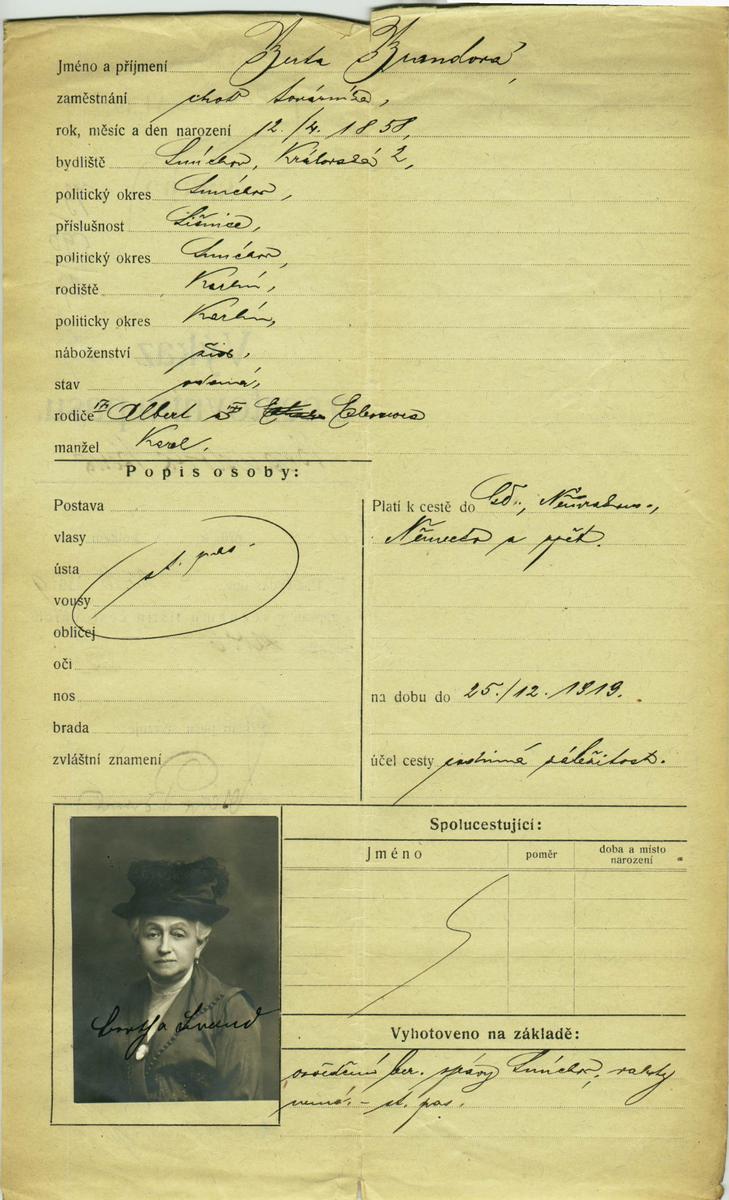 Jméno a příjmení Berta Brandová,
zaměstnání choť továrníka,
rok, měsíc a den narození 12./4. 1858,
bydliště Smíchov, Královská 2,
politický okres Smíchov,
příslušnost Líšnice,
politický okres Smíchov,
rodiště Karlín,
politicky okres Karlín,
náboženství žid.,
stav vdaná,
rodiče Albert a Eleonora
manžel Karel.
Popis osoby:
Postava
vlasy
ústa
vousy
obličej
st. pas.
oči
nos
brada
zvláštní znamení
Platí k cestě do
Německa a zpět.
na dobu do 25./12. 1919.
účel cesty rodinná záležitost.
Spolucestující:
Jméno poměr doba a místo narození
Bertha Brand
Vyhotoveno na základě:
osvědčení ber. správy Smíchov,
nemá. – st. pas.